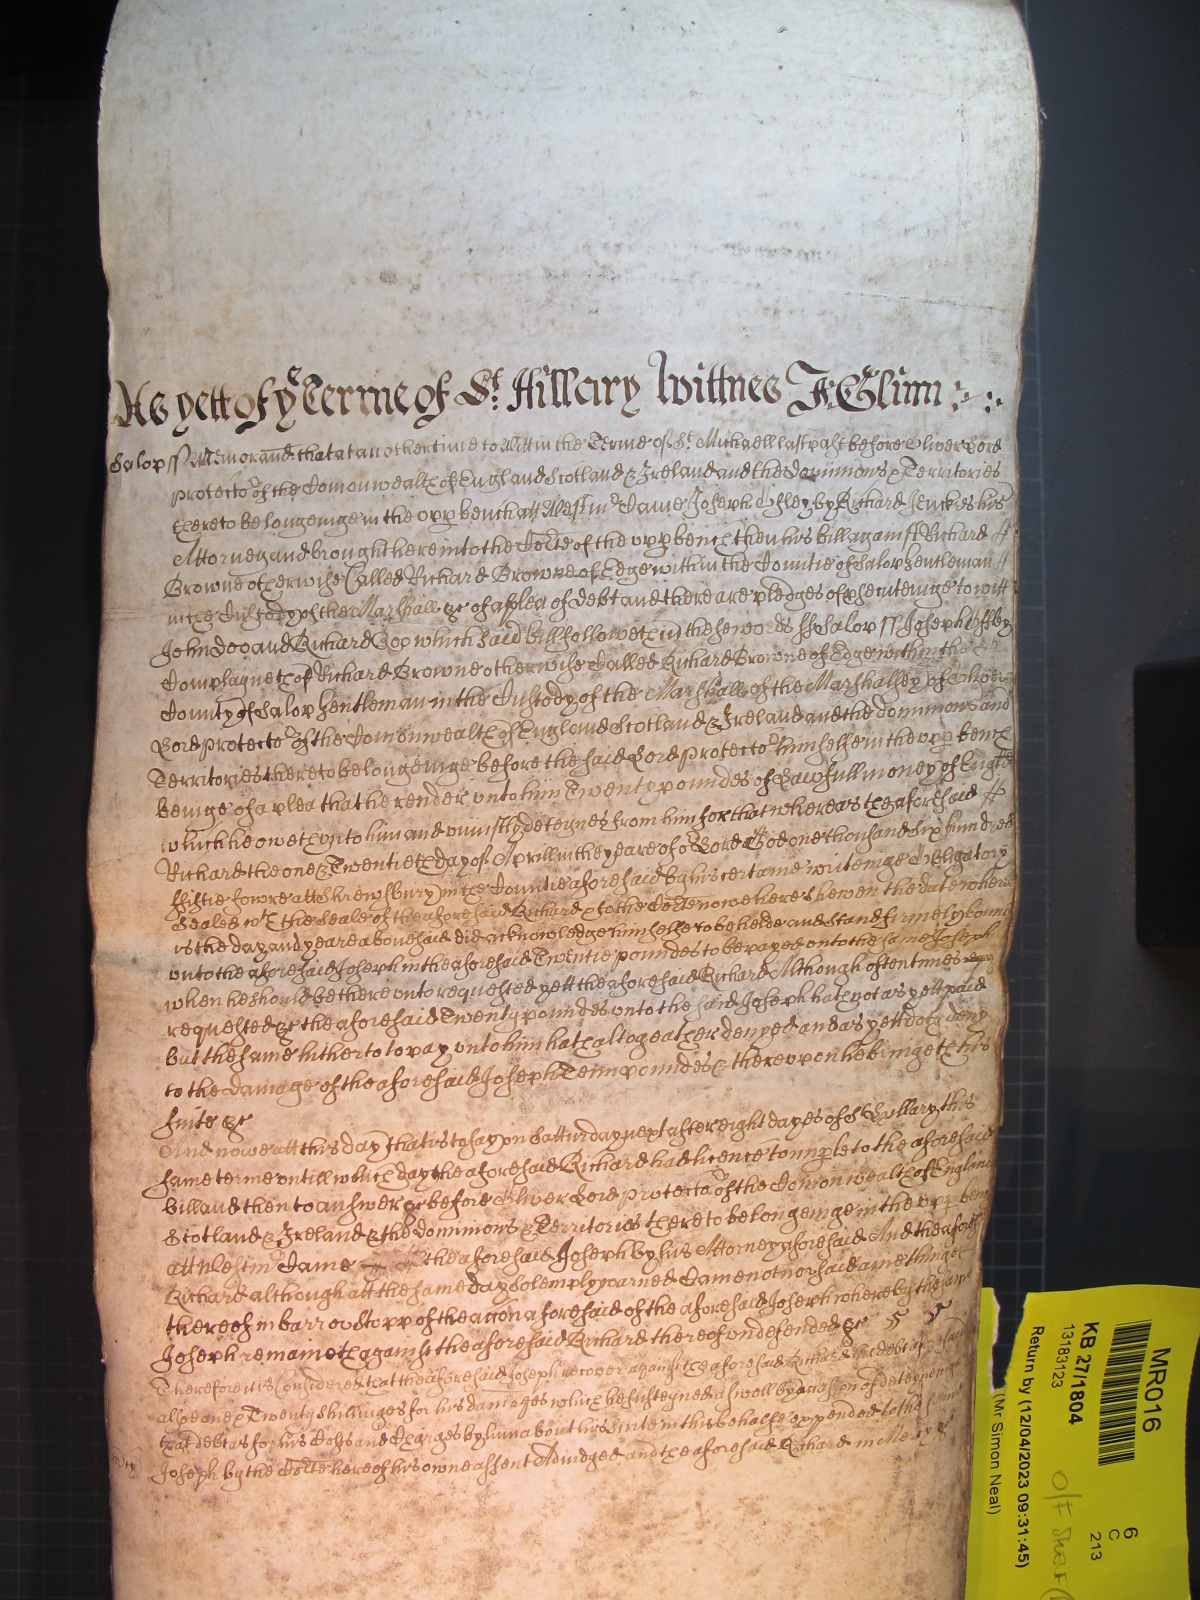 As yett of ye Terme of St. Hillary Wittnes J Glinn
Salop ss Memorand that att an other time to witt in the Terme of St Michaell last past before Oliver Lord
Protector of the Comonwealth of England Scotland & Ireland and the Dominions & Territories
thereto belongeinge in the upp bench att Westmr Came Joseph Offley by Richard Jenkes his
Attorney and brought here into the Corte of the upp bench then his bill against Richard
Browne otherwise Called Richard Browne of Edge within the Countie of Salop Gentleman
in the Custody of the Marshall &c of a plea of debt and there are pledges of prsecuteinge to witt
John Doo and Richard Roo which said bill followeth in these words ss Salop ss Joseph Offley
Complayneth of Richard Browne otherwise Called Richard Browne of Edge within the
County of Salop Gentleman in the Custody of the Marshall of the Marshalsey of Oliver
Lord Protector of the Comonwealth of England Scotland & Ireland and the dominions and
Territories thereto belongeinge before the said Lord Protector himselfe in the upp bench
beinge of a plea that he render unto him Twenty poundes of Lawfull money of England
which he oweth unto him and uniustly deteynes from him for that whereas the aforesaid
Richard the one & Twentieth day of Aprill in the yeare of or Lord God one thousand six hundred
fiftie fowre att Shrewsbury in the Countie aforesaid by his certaine writeinge Obligatory
Sealed wth the Seale of the aforesaid Richard & to the Corte nowe here shewen the date whereof
is the day and yeare abovesaid did acknowledge himselfe to be helde and stand firmely bound
unto the aforesaid Joseph in the aforesaid Twentie poundes to be payed unto the same Joseph
when he should be there unto requested yett the aforesaid Richard Although oftentimes
requested &c the aforesaid Twenty poundes unto the said Joseph hath not as yett paid
but the same hitherto to pay unto him hath altogeather denyed and as yett doth deny
to the damage of the aforesaid Joseph Tenn poundes & thereupon he bringeth this
suite &c
And nowe att this day That is to say on Satturday next after eight dayes of St Hillary this
same terme untill which day the aforesaid Richard had licence to imple to the aforesaid
bill and then to answer &c before Oliver Lord Protector of the Comonwealth of England
Scotland & Ireland & the Dominions & Territories thereto belongeinge in the upp bench
att Westmr Came the aforesaid Joseph by his Attorney aforesaid And the aforesaid
Richard although att the same day solemply warned Came not nor said anethinge
thereof in barr or stopp of the action aforesaid of the aforesaid Joseph whereby the same
Joseph remaineth against the aforesaid Richard thereof undefended &c
Therefore it is Considered that the aforesaid Joseph recover against the aforesaid Richard his debt aforesaid
alsoe and Twenty shillinges for his damages which he susteyned as well by occasion of deteyneinge
that debt as for his Costs and Charges by him about his suite in this behalfe expended to the same
Joseph by the Corte here of his owne assent Adiudged and the aforesaid Richard in Mercy &c
mcy
MR016
6
C
213
KB 27/1804
13183123
Return by (12/04/2023 09:31:45)
(Mr Simon Neal)